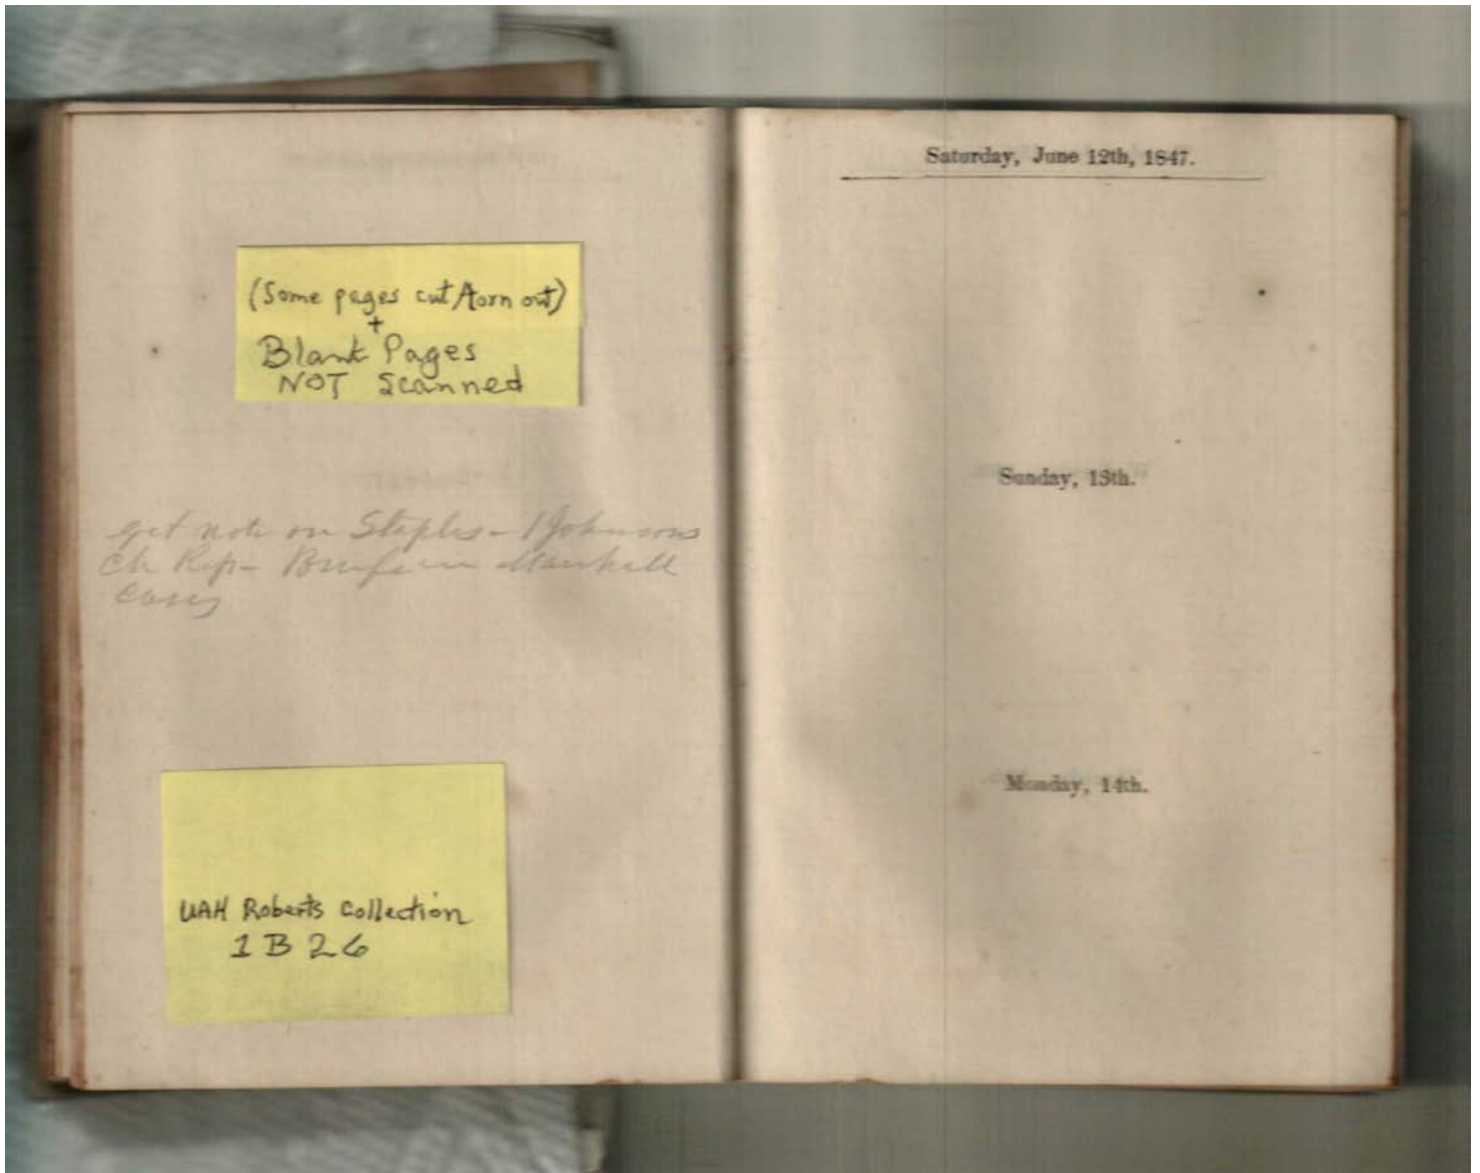 (Some pages cut/torn out)
+
Blank Pages
NOT Scanned
get note on Staples - 1 Johnsons
Ch Rep - Marshall
Cases
UAH Roberts Collection
1 B 26
Saturday, June 12th, 1847.
Sunday, 13th.
Monday, 14th.